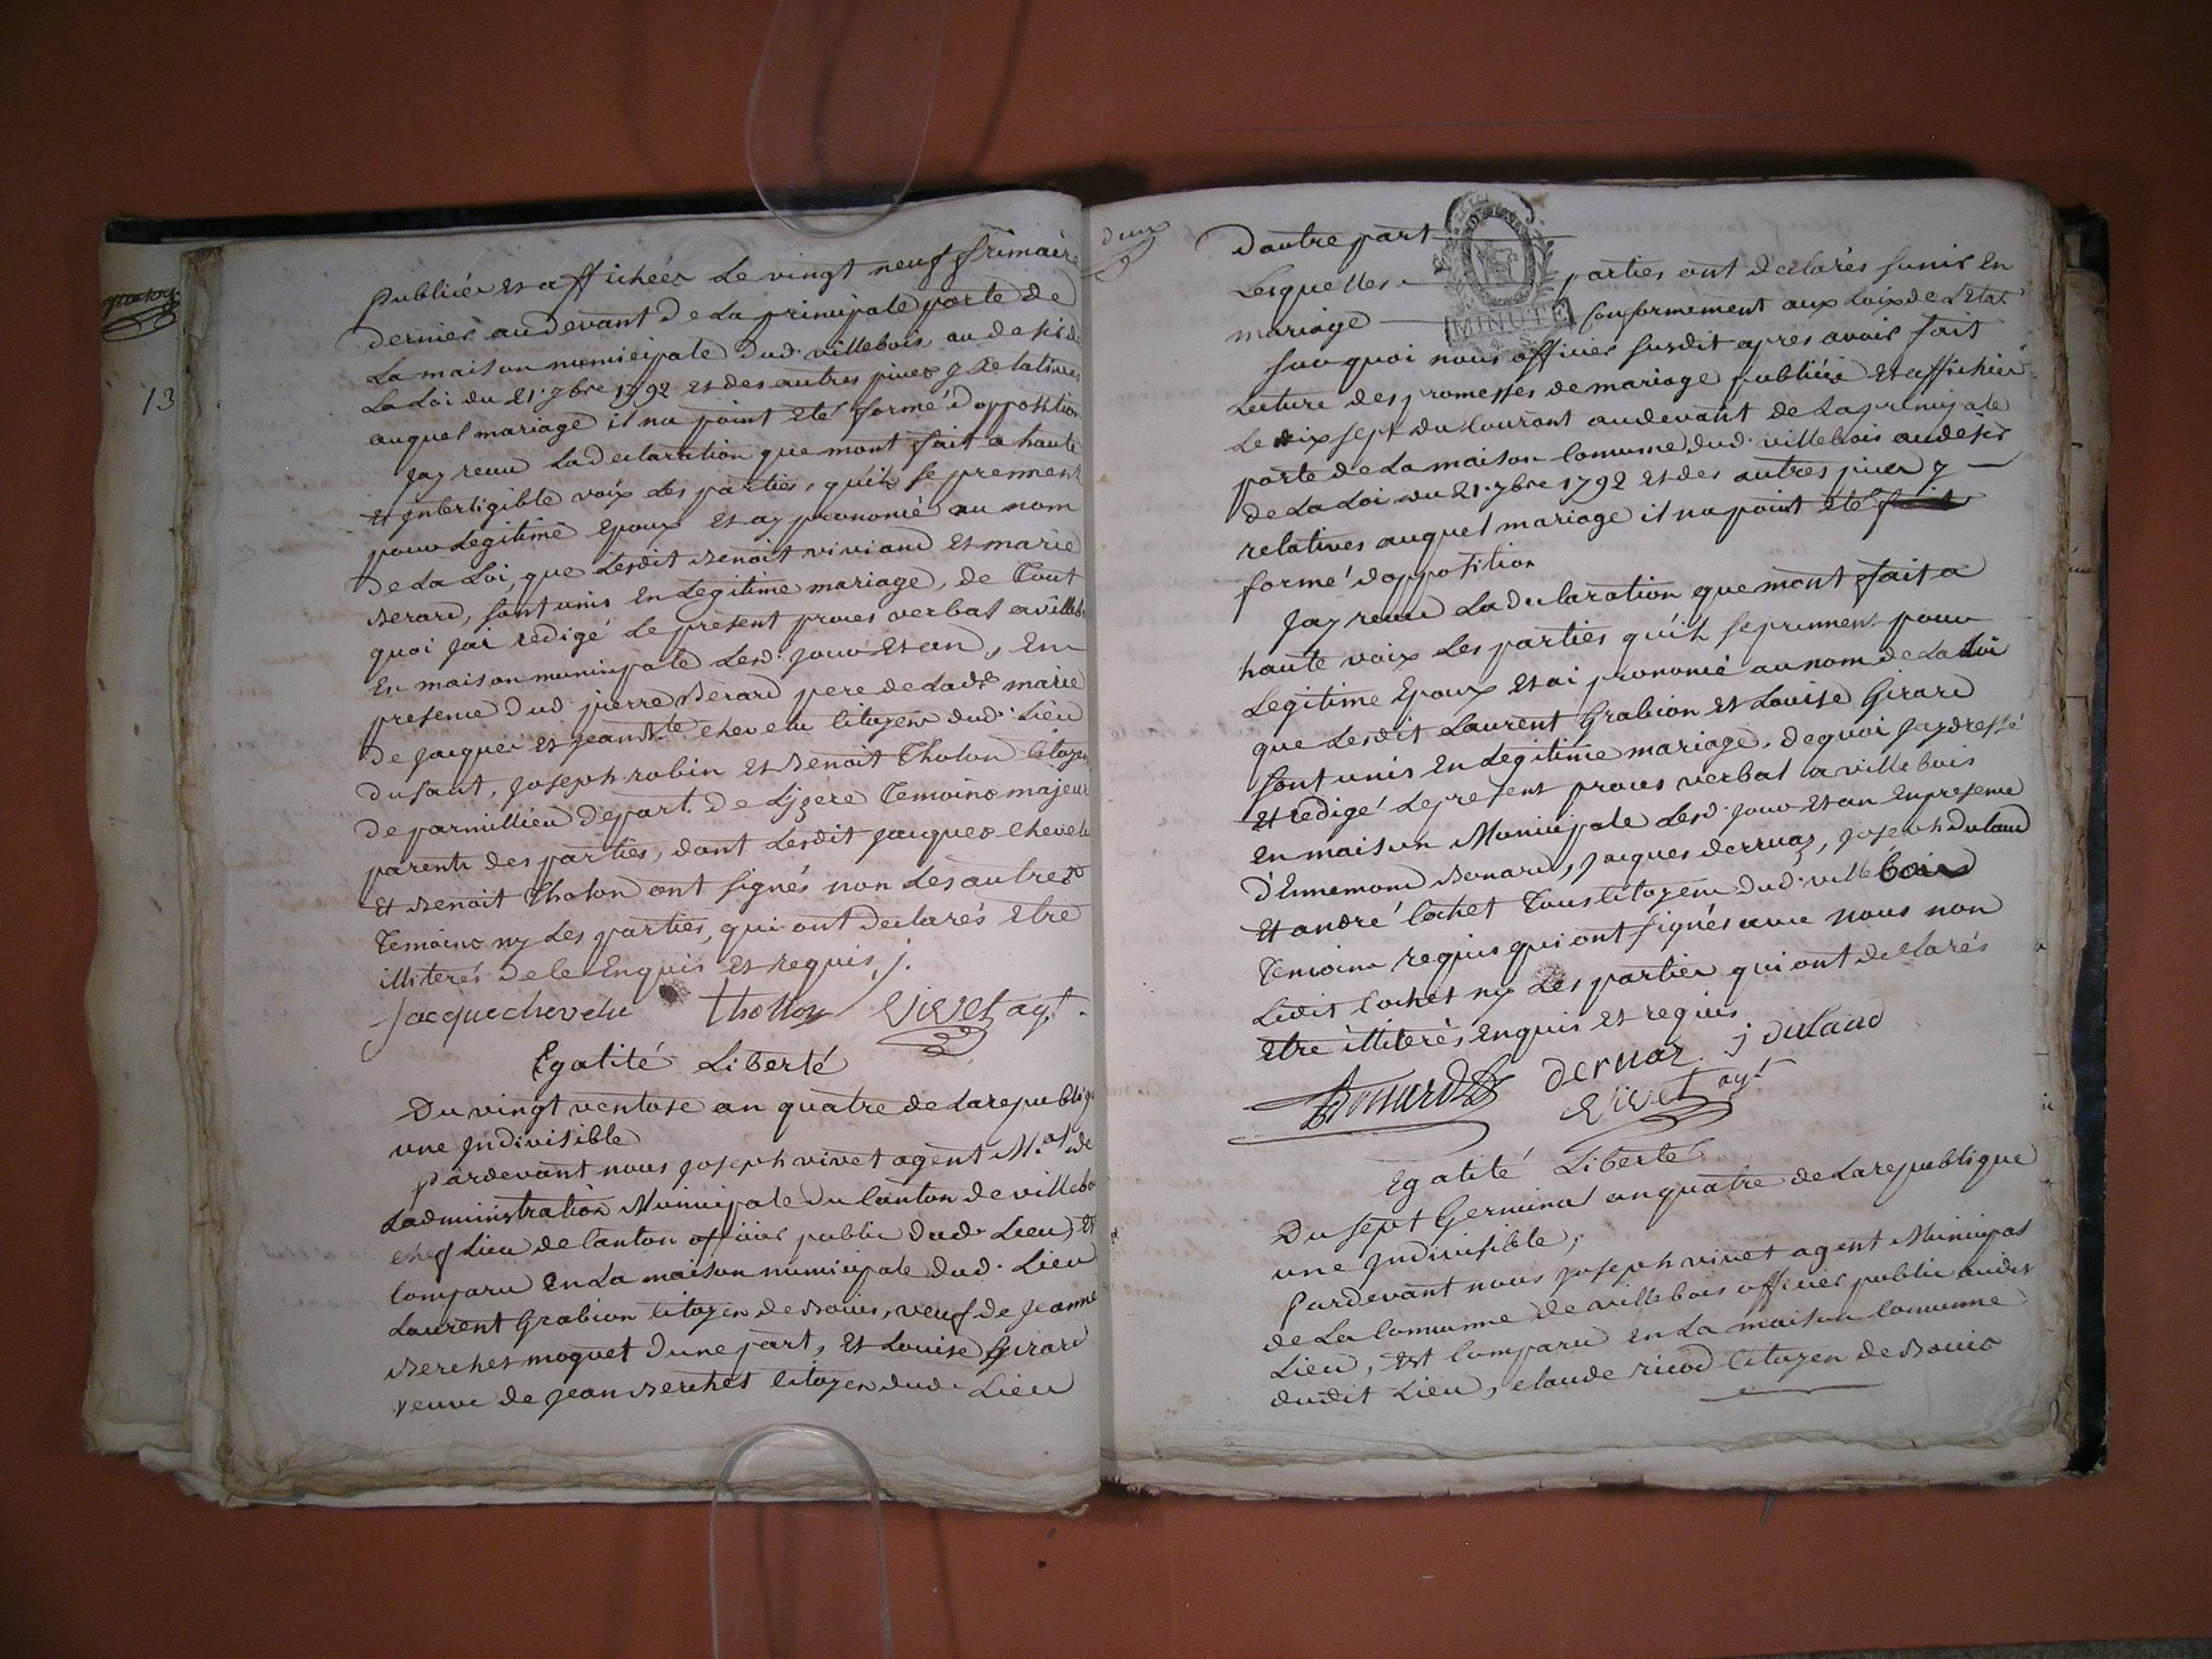 13
Publiées et affichées Le vingt neuf frimaire
dernier au devant de La principale porte de
La maison municipale dud. villebois au desir de
La Loi du 21. 7bre 1792 et des autres pieces y Relatives
auquel mariage il na point eté formé dopposition
Jay recu La declaration que mont fait a haute
et intertigible voix Les parties, quih se prennent
pour Legitime epoux et ay prononcé au nom
de La Loi, que Lesdit Benoit viviand et marie
Berard, sont unis en Legitime mariage, de Tout
quoi jai redigé Le present proces verbal a villeb
En maison municipale Lesd. jour et an, En
presence dud. pierre Berard pere de Lade marie
de Jacques et Jean Bte chevelu Citoyens dud. Lieu
du saut, Joseph robin et Benoit Tholon Citoyens
de parmillieu depart. de Lizere Temoins majeur
parents des parties, dont Lesdit Jacques chevelu
et Benoit Tholon ont signés non Les autres
Temoins ny Les parties, qui ont declarés etre
illiterés de ce Enquis et requis j.
Jacque chevelu thollon vivet agt.
Egalité Liberté
Du vingt ventose an quatre de La republiq
une Indivisible
Pardevant nous Joseph vivet agent M.al de
Ladministration Municipale du Canton de villebo
chef Lieu de Canton officier public dud. Lieu, et
Comparu En La maison municipale dud. Lieu
Laurent Grabion Citoyen de Bouis, veuf de Jeanne
Berchet moquet dune part, et Louise Girard
veuve de Jean Berchet Citoyen dud. Lieu
deux
dautre part
Lesquelles parties ont declarés sunir En
mariage Conformement aux Loix de Letat
MINUTE
sur quoi nous officier susdit apres avoir fait
Lecture des promesses de mariage publiées et affichées
Le dix sept du Courant audevant de La principale
porte de La maison Comune dud. villebois au desir
de La Loi du 21. 7bre 1792 et des autres pieces y
relatives auquel mariage il na point eté fait
formé dopposition
Jay recu La declaration que mont fait a
haute voix Les parties quih se prennent pour
Legitime Epoux et ai prononcé au nom de La Loi
que Lesdit Laurent Grabion et Louise Girard
sont unis En Legitime mariage, de quoi jay dressé
et redigé Le present proces verbal a villebois
En maison Municipale Lesd. jour et an En presence
d'Ennemond Bonard, Jacques dervaz, Joseph dulaud
et andré Cochet Tous Citoyens dud. villebois
Temoins requis qui ont signés avec nous non
Ledit Cochet ny Les parties qui ont declarés
etre illiterés enquis et requis
Bonard dervaz j dulaud
vivet agt
Egalité Liberté
Du sept Germinal an quatre de La republique
une Indivisible,
Pardevant nous Joseph vivet agent Municipal
de La Commune de villebois officier public audit
Lieu, est Comparu en La maison Comune
dudit Lieu, claude ricod Citoyen de Bouis